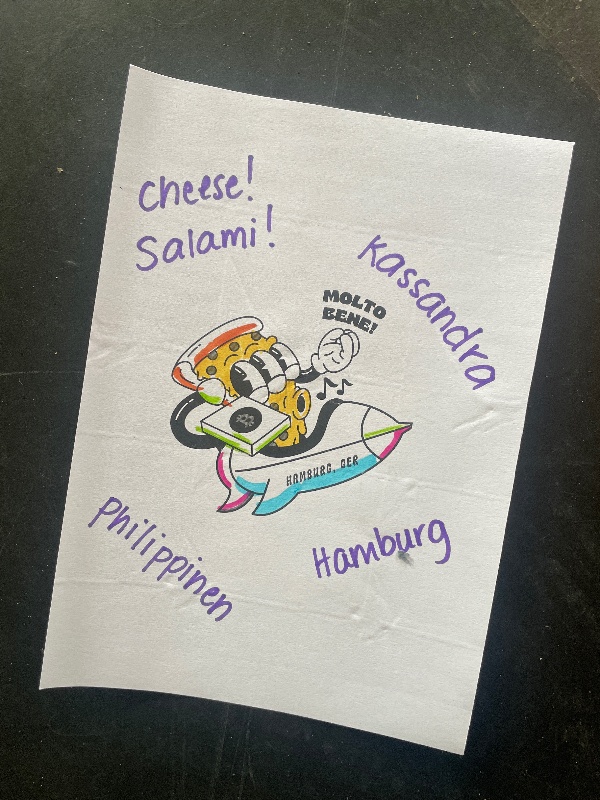 Cheese!
Salami!
Kassandra
MOLTO
BENE!
HAMBURG, GER
Philippinen
Hamburg